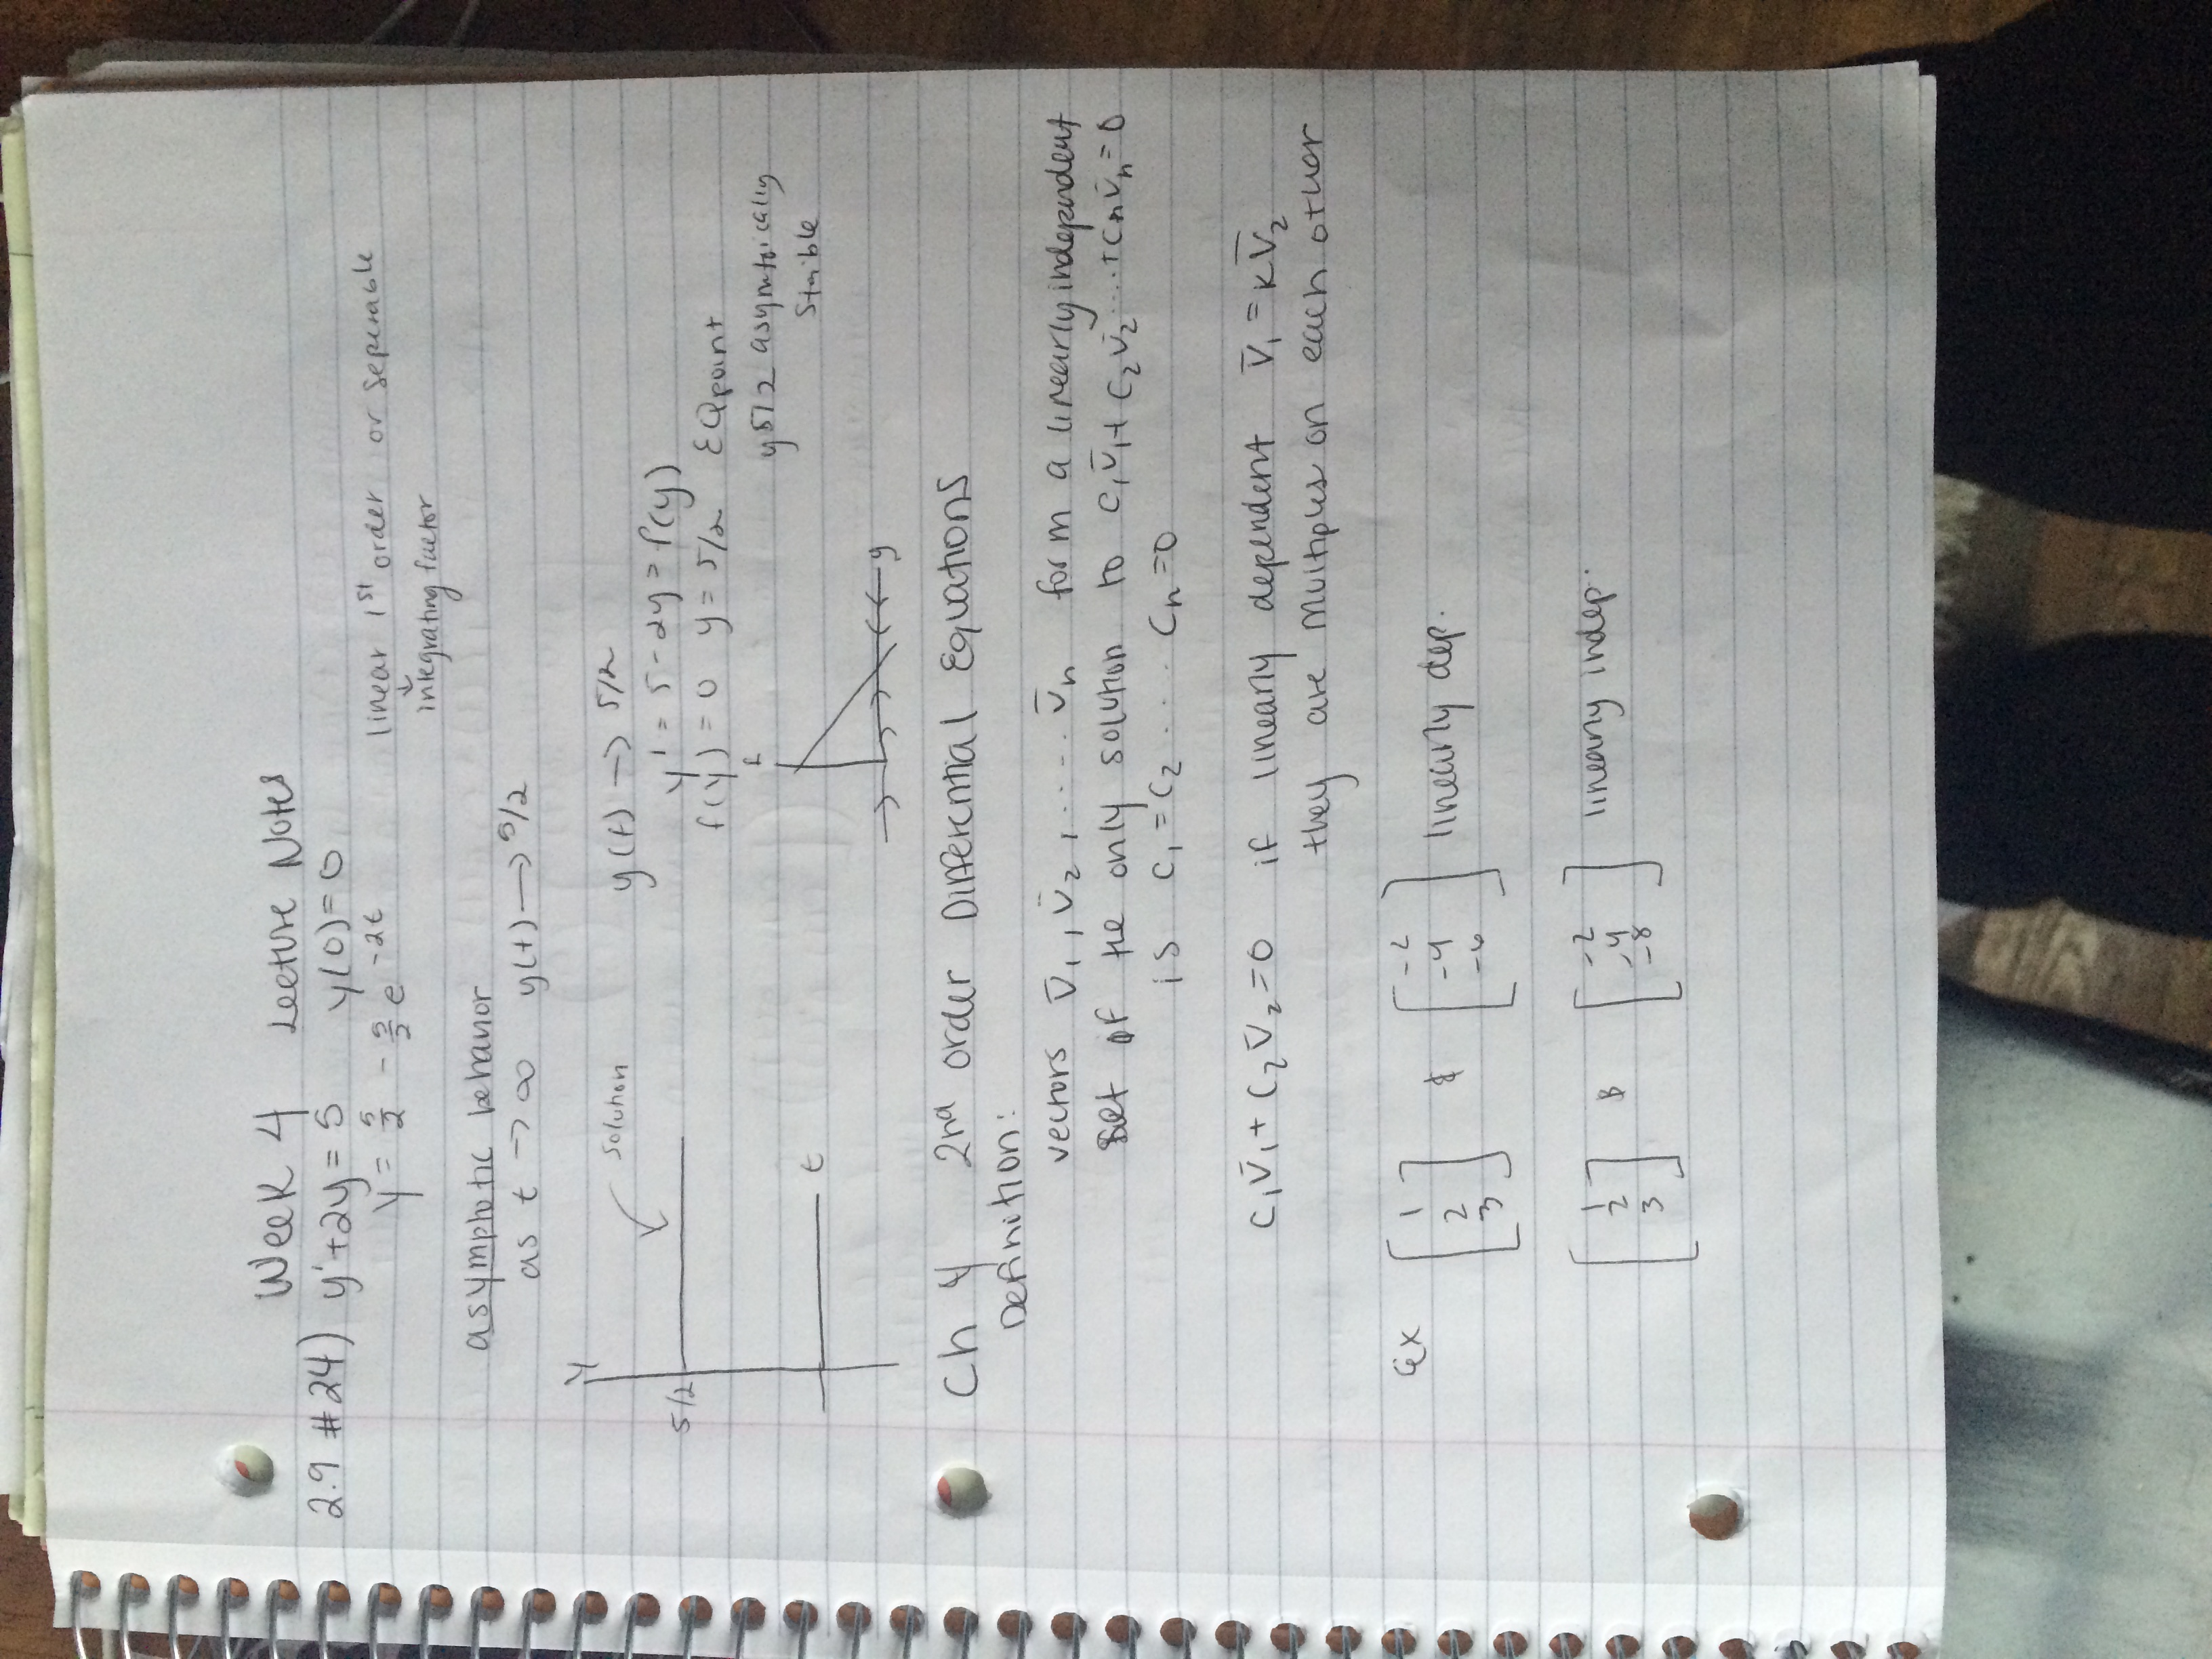 Week 4 Lecture Notes
2.9 #24) y'+2y=5 y(0)=0
y = 5/2 - 5/2 e^-2t
linear 1st order or seperable
↓
integrating factor
asymptotic behavior
as t → ∞ y(t) → 5/2
y
solution
y(t) → 5/2
5/2
y' = 5-2y = f(y)
f(y) = 0 y = 5/2 EQ point
y5/2 asymtotically
stable
f
t
y
Ch 4 2nd order Differential Equations
Definition:
vectors v̄₁, v̄₂, .... v̄n form a linearly independent
set if the only solution to c₁v̄₁ + c₂v̄₂ .... + cnv̄n = 0
is c₁ = c₂ .... cn = 0
c₁v̄₁ + c₂v̄₂ = 0 if linearly dependent v̄₁ = kv̄₂
they are multiples on each other
Ex [1 2 3] & [-2 -4 -6] linearly dep.
[1 2 3] & [-2 -4 -8] linearly indep.